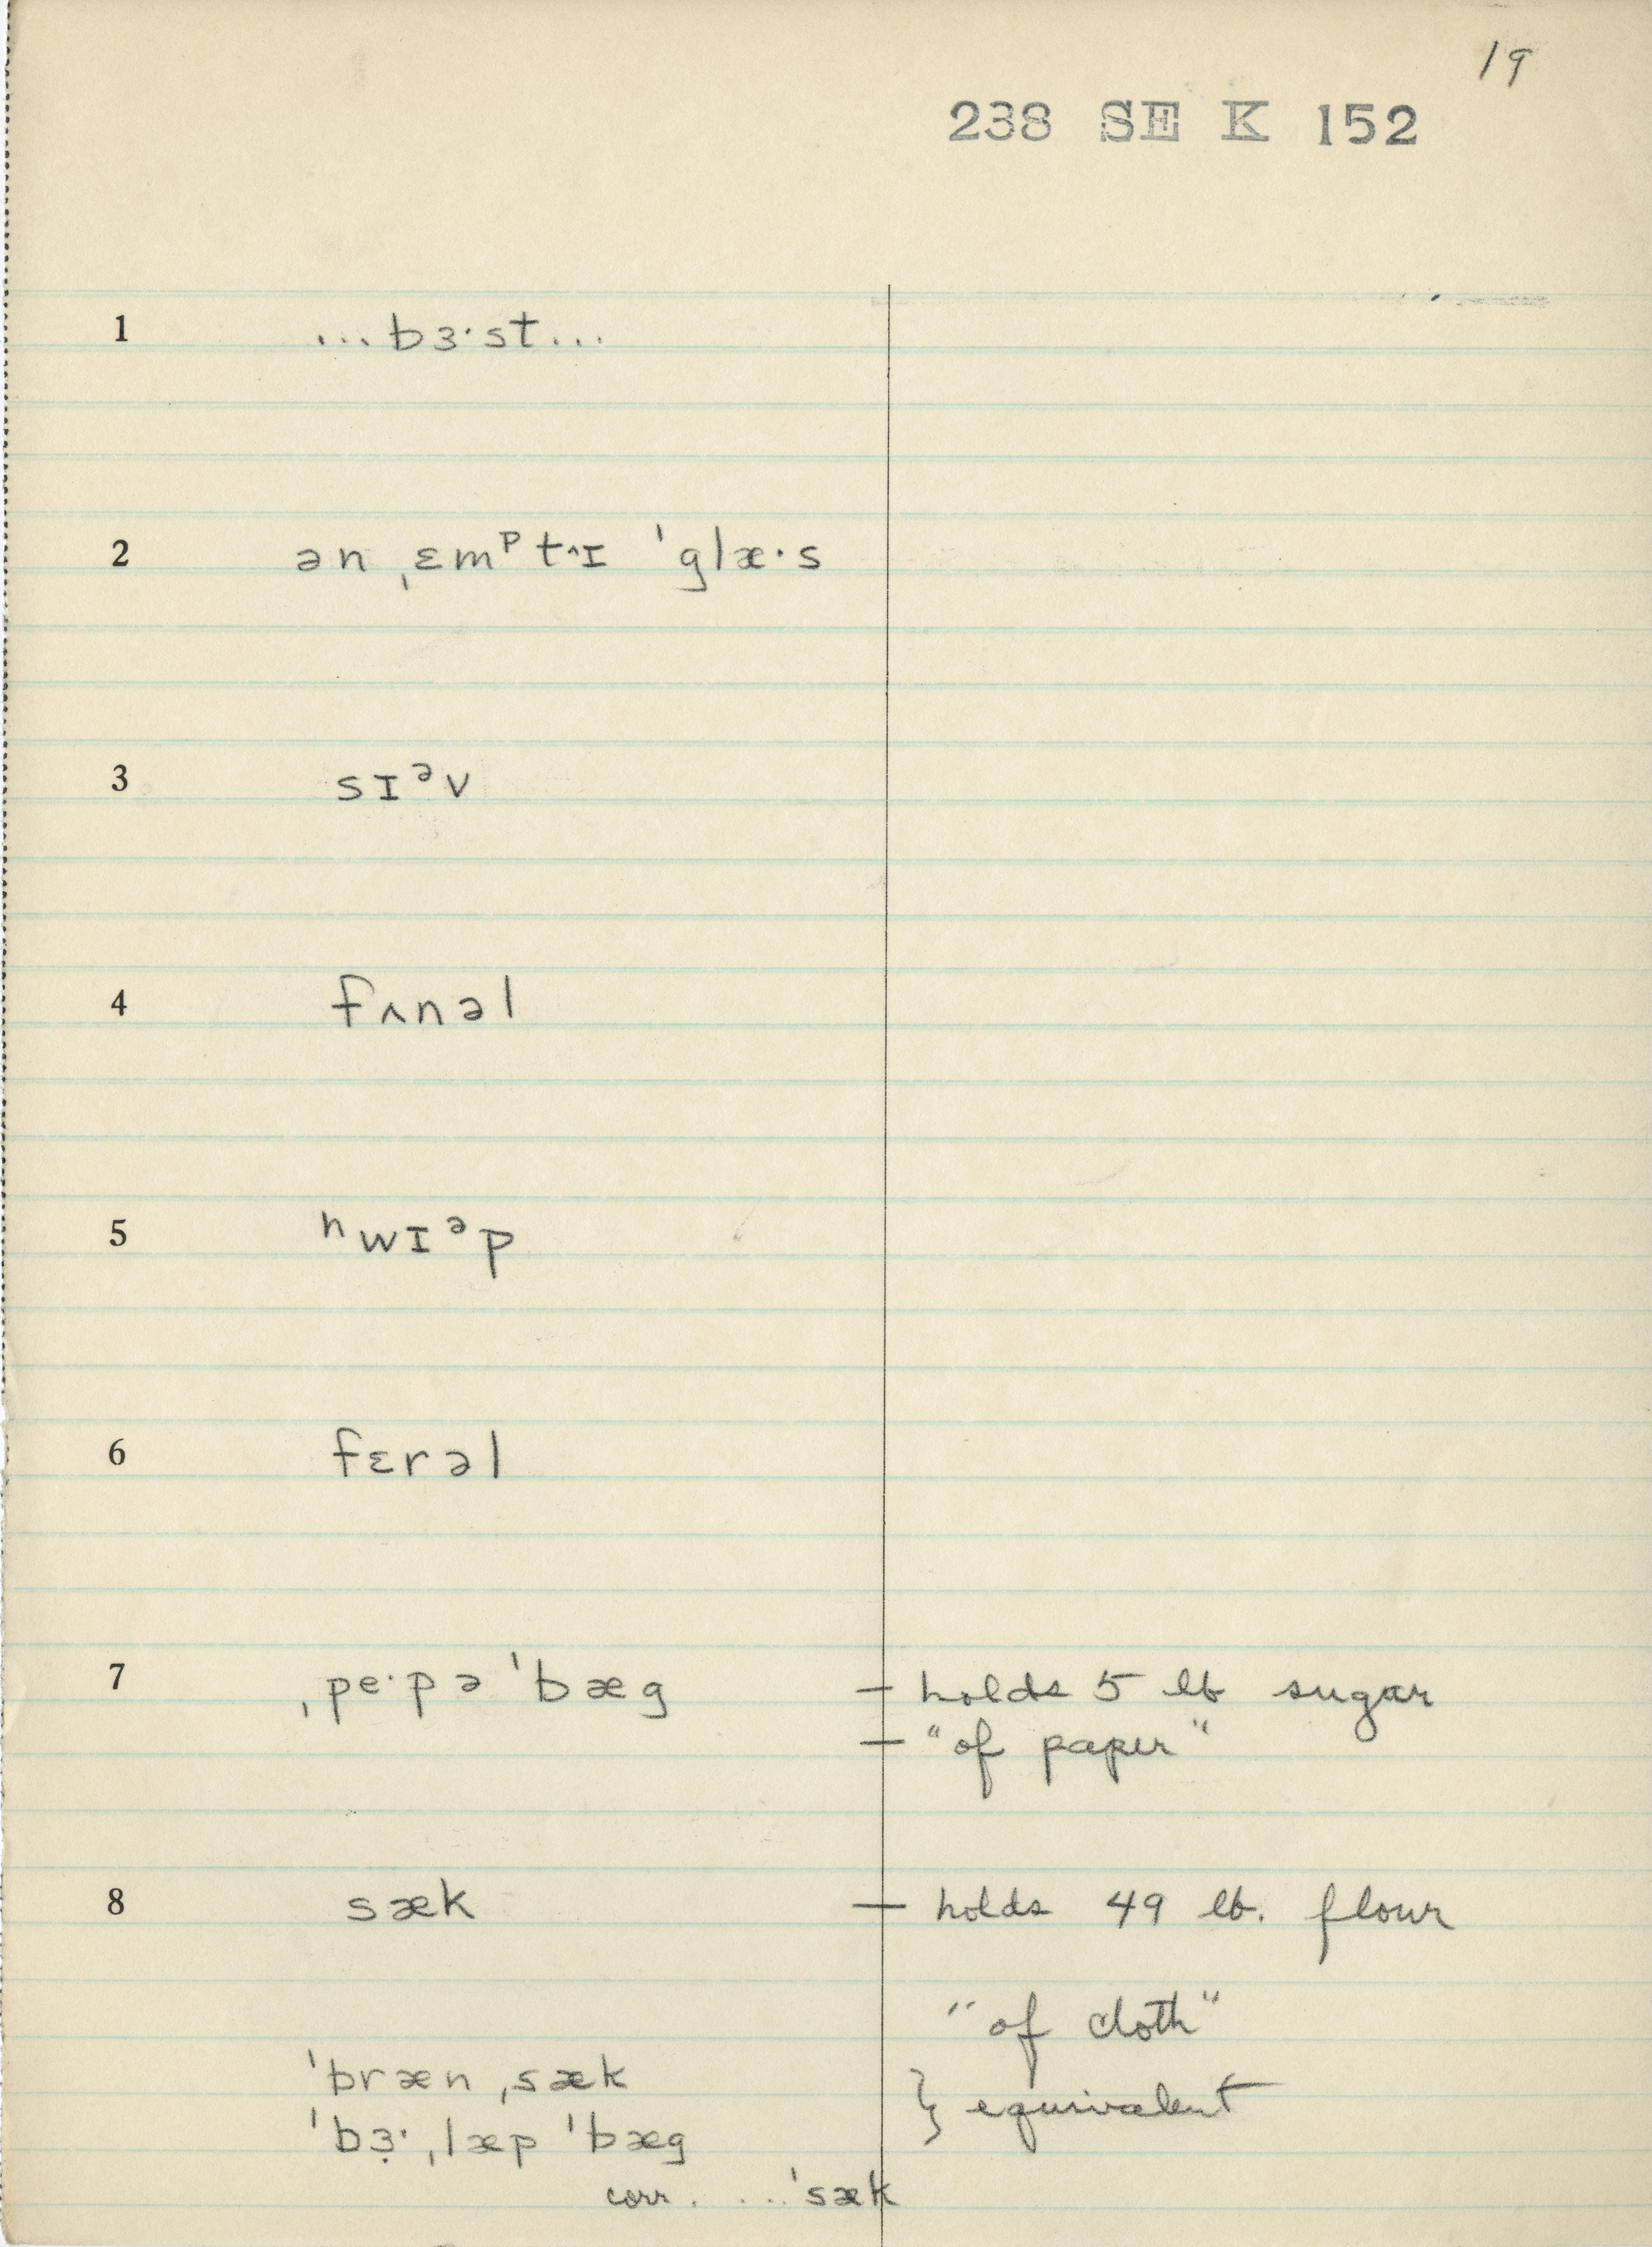 19
238 SE K 152
1 ...bɜ·st...
2 ən ˌɛmᵖt˄ɪ ˈglæ·s
3 sɪᵊv
4 fʌnəl
5 ʰwɪᵊp
6 fɛrəl
7 ˌpe·pə ˈbæg — holds 5 lb sugar
— "of paper"
8 sæk — holds 49 lb. flour
"of cloth"
ˈbræn ˌsæk } equivalent
ˈbɜ̣· ˌlæp ˈbæg
corr. ...ˈsæk